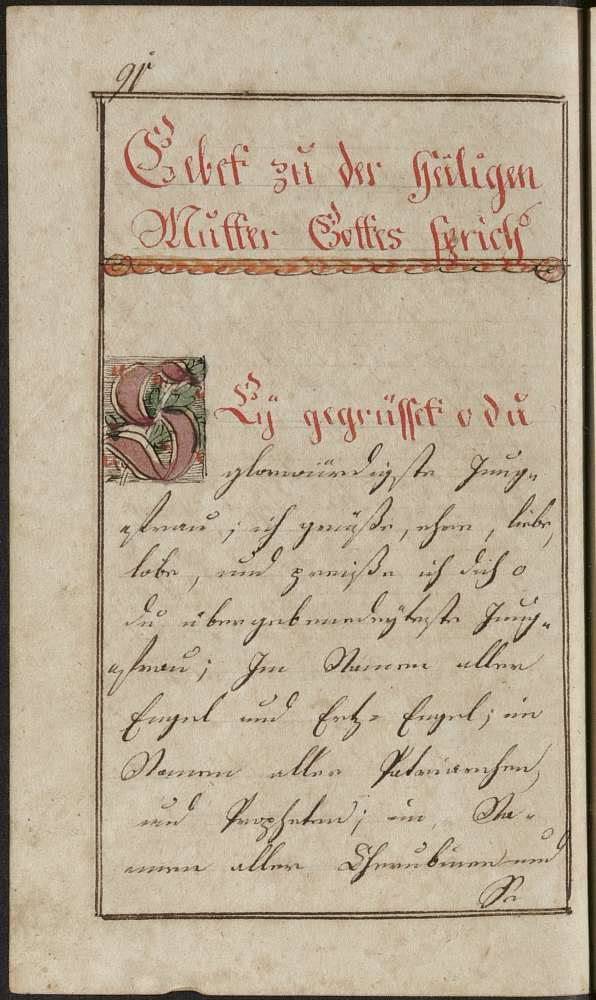 Gebett zu der Heiligen
Mutter Gottes sprich
Sey gegrüsset o du
glorwürdigste Jung-
frau; ich grüsse, ehre, liebe,
lobe, und preiße ich dich o
du übergebenedeyteste Jung-
frau; Im Namen aller
Engel und Ertz-Engel; im
Namen aller Patriarchen,
und Propheten; im Na-
men aller Cherubinen und
Se